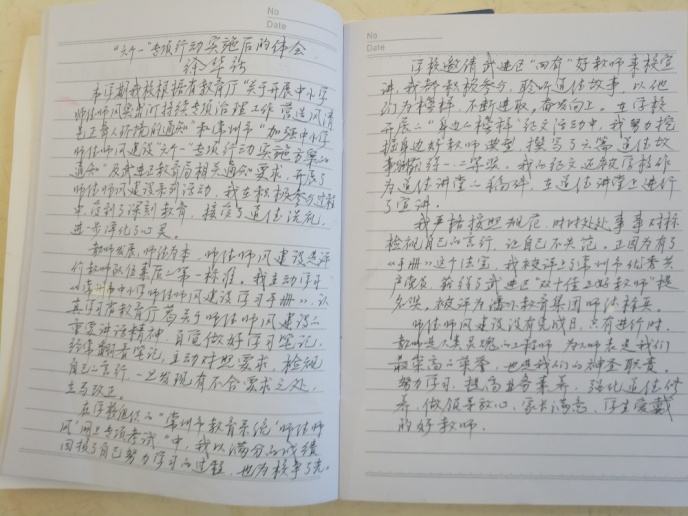 No
Date
"六个一"专项行动实施后的体会
徐华强
本学期我校根据省教育厅"关于开展中小学
师德师风突出问题专项治理工作 营造风清
气正育人环境的通知"和常州市"加强中小学
师德师风建设'六个一'专项行动实施方案的
通知"及武进区教育局相关通知要求,开展了
师德师风建设系列活动,我在积极参与过程
中受到了深刻教育,接受了道德洗礼,
进一步净化了心灵。
教师发展,师德为本,师德师风建设是评
价教师队伍素质的第一标准。我主动学习
《常州市中小学师德师风建设学习手册》,认
真学习省教育厅有关于师德师风建设的
重要讲话精神,自觉做好学习笔记,
经常翻看笔记,主动对照要求,检视
自己的言行,一旦发现有不合要求之处,
立马改正。
在学校组织的"常州市教育系统'师德师
风'网上专项考试"中,我以满分的成绩
回报了自己努力学习的过程,也为校争了光。
No
Date
学校邀请武进区"四有"好教师来校宣
讲,我都积极参与,聆听道德故事,以他
们为榜样,不断进取,奋发向上。在学校
开展的"身边的榜样"征文活动中,我努力挖
掘身边好教师典型,撰写了六篇道德故
事 一二等奖。我的征文还被学校作
为道德讲堂的稿件,在道德讲堂上进行
了宣讲。
我严格按照规范,时时处处事事对标
检视自己的言行,让自己不失范。正因为有了
《手册》这个法宝,我被评上了常州市优秀共
产党员,获得了武进区"双十佳上好教师"提
名奖。被评为 教育集团师德标兵。
师德师风建设没有完成日,只有进行时,
教师是人类灵魂的工程师,为人师表是我们
最崇高的荣誉,也是我们的神圣职责。
努力学习,提高业务素养,强化道德修
养,做领导放心、家长满意、学生爱戴
的好教师。